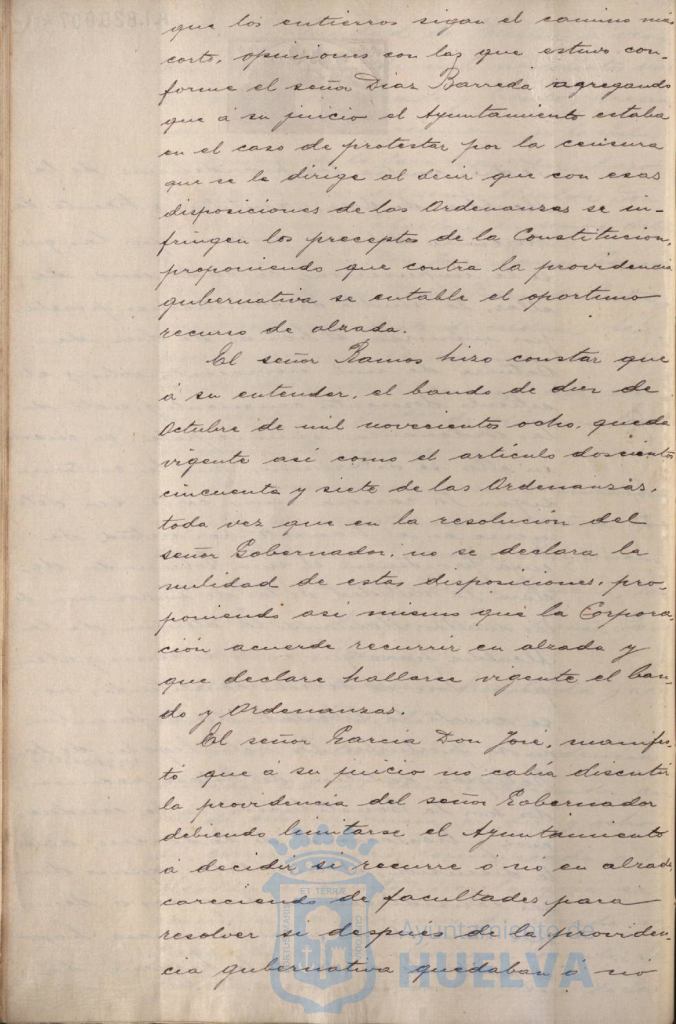 que los entierros sigan el camino más
corto, opiniones con las que estuvo con-
forme el señor Díaz Barreda agregando
que á su juicio el Ayuntamiento estaba
en el caso de protestar por la censura
que se le dirige al decir que con esas
disposiciones de las Ordenanzas se in-
fringen los preceptos de la Constitución,
proponiendo que contra la providencia
gubernativa se entable el oportuno
recurso de alzada.
El señor Ramos hizo constar que
á su entender, el bando de diez de
Octubre de mil novecientos ocho, queda
vigente así como el artículo doscientos
cincuenta y siete de las Ordenanzas,
toda vez que en la resolución del
señor Gobernador, no se declara la
nulidad de estas disposiciones, pro-
poniendo así mismo que la Corpora-
ción acuerde recurrir en alzada y
que declare hallarse vigente el ban-
do y Ordenanzas.
El señor García Don José, manifes-
tó que á su juicio no cabía discutir
la providencia del señor Gobernador
debiendo limitarse el Ayuntamiento
á decidir si recurre ó nó en alzada,
careciendo de facultades para
resolver si después de la providen-
cia gubernativa quedaban ó nó
ET TERRÆ
Ayuntamiento de
HUELVA